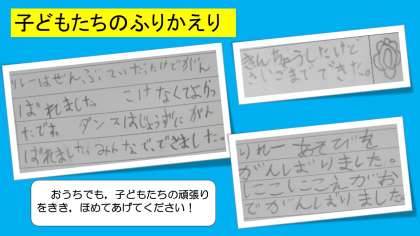 子どもたちのふりかえり
りれーはぜんぶ
がん
ばれました。 こけなくてよかっ
たでね ダンスはじょうずにがん
ばれました。みんなでできました。
きんちょうしたけど
さいごまでできた。
りれーあそびを
がんばりました。
にこにこえがお
でがんばりました
おうちでも，子どもたちの頑張り
をきき，ほめてあげてください！